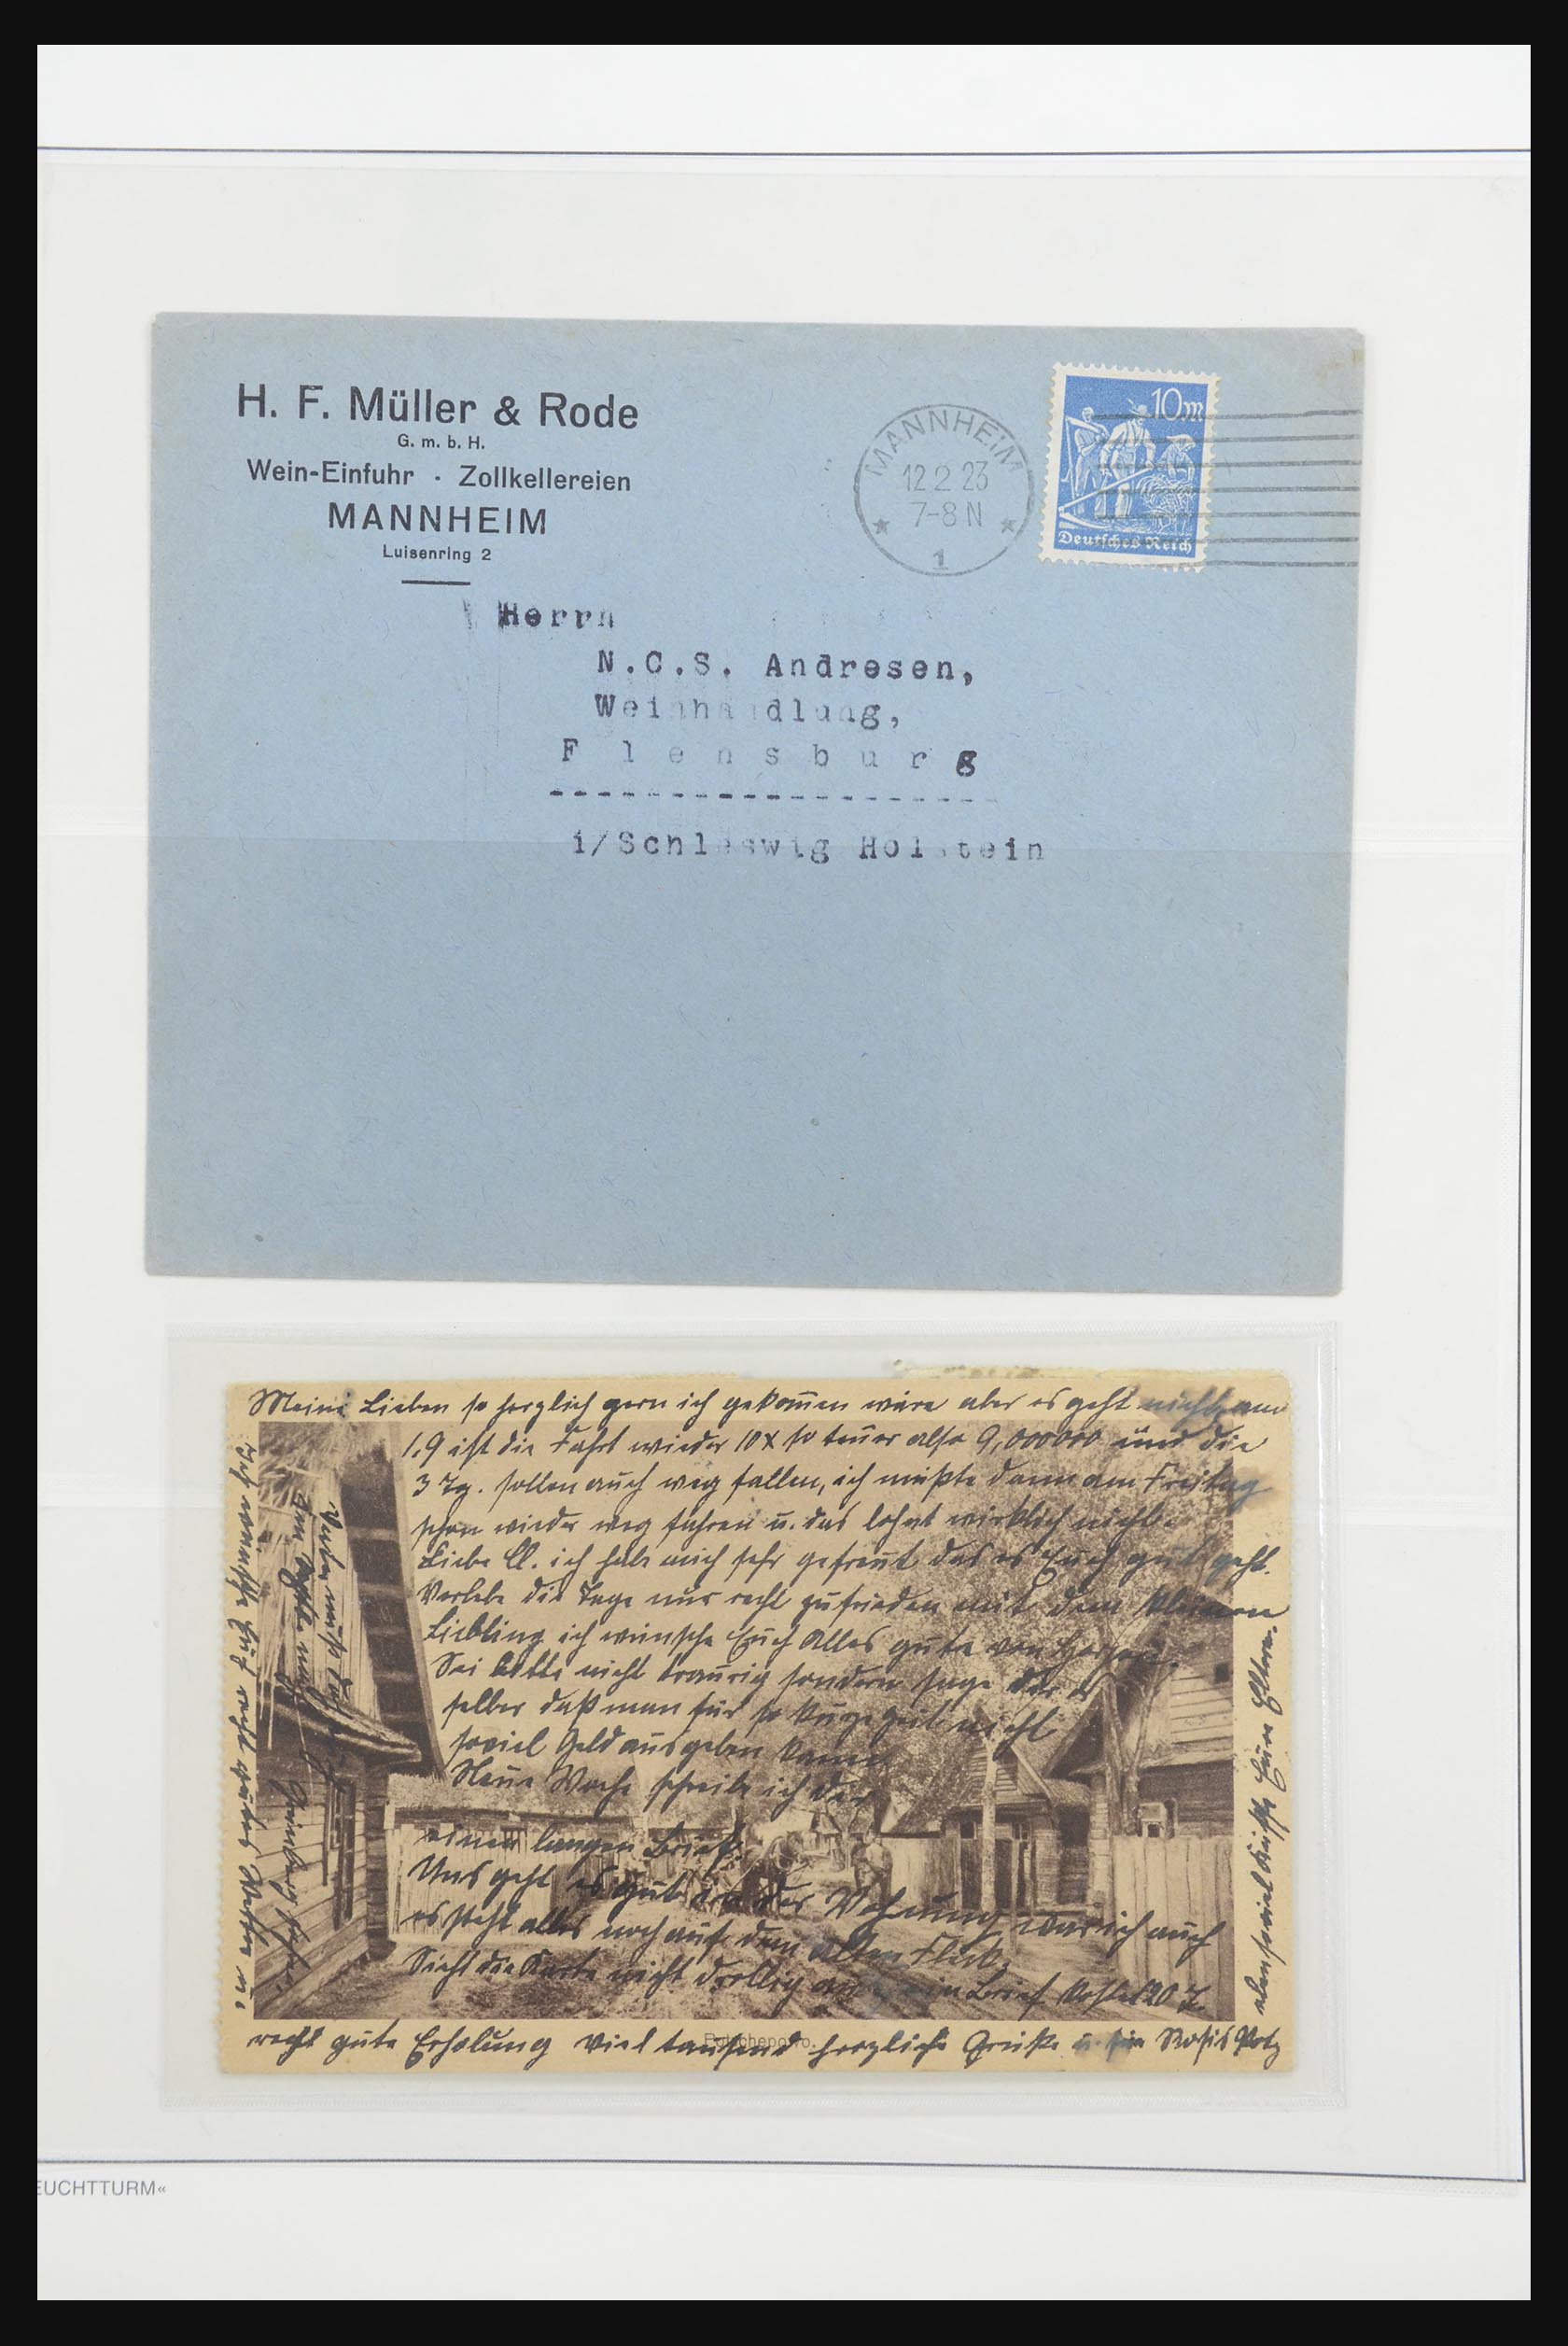 H. F. Müller & Rode
G. m. b. H.
Wein-Einfuhr · Zollkellereien
MANNHEIM
Luisenring 2
MANNHEIM
12 2 23
7-8 N
1
10m
Deutsches Reich
Herrn
N.C.S. Andresen,
Weinhandlung,
Flensburg
i/Schleswig Holstein
Meine Lieben so herzlich gern ich gekom̅en wäre aber es geht nicht, am
1.9 ist die Fahrt wieder 10x so teuer also 9,000000 und die
3 Tg. sollen auch weg fallen, ich müßte dann am Freitag
schon wieder weg fahren u. das lohnt wirklich nicht.
Liebe ich habe mich sehr gefreut das es Euch gut geht.
Verlebe die Tage nur recht zufrieden mit dem kleinen
Liebling ich wünsche Euch Alles gute von Herzen.
Sei bitte nicht traurig sondern sage dir es
selber daß man für so kurze Zeit nicht
soviel Geld ausgeben kann
Neue Woche schreibe ich dir
einen langen Brief.
Uns geht es gut in der Wohnung war ich auch
es steht alles noch auf dem alten Fleck.
Sieht die Karte nicht drollig aus, ein Brief kostet 20 T.
Ich wünsche Euch recht gutes Wetter u.
recht gute Erholung viel tausend herzliche Grüße u.
Eure Eltern.
EUCHTTURM«